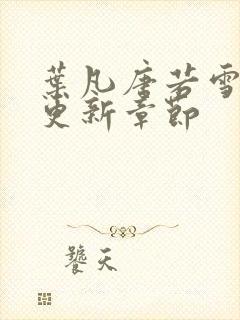 葉凡唐若雪
更新章節
饕天